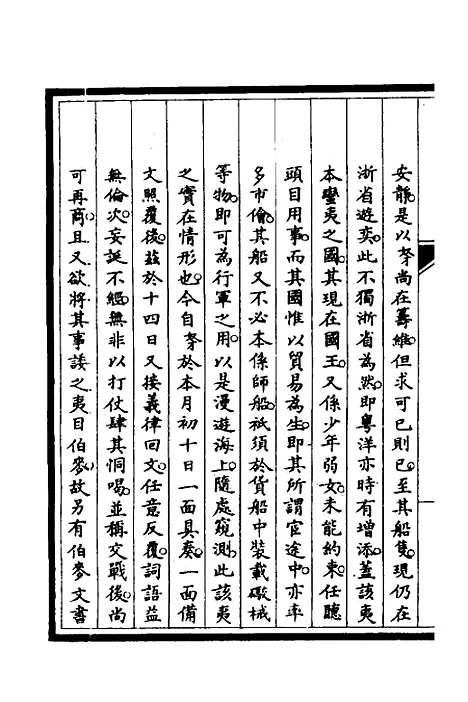 安靜。是以拏尚在籌維。但求可已則已。至其船隻。現仍在
浙省遊奕。此不獨浙省為然。即粵洋亦時有增添。蓋該夷
本蠻夷之國。其現在國王。又係少年弱女。未能約束。任聽
頭目用事。而其國惟以貿易為生。即其所謂官途中。亦率
多市儈。其船又不必本係師船。祇須於貨船中裝載礮械
等物。即可為行軍之用。以是漫遊海上。隨處窺測。此該夷
之實在情形也。今自拏於本月初十日一面具奏。一面備
文照覆後。茲於十四日又接義律回文。任意反覆。詞語益
無倫次。妄誕不經。無非以打仗肆其恫喝。並稱交戰後。尚
可再商。且又欲將其事諉之夷目伯麥。故另有伯麥文書